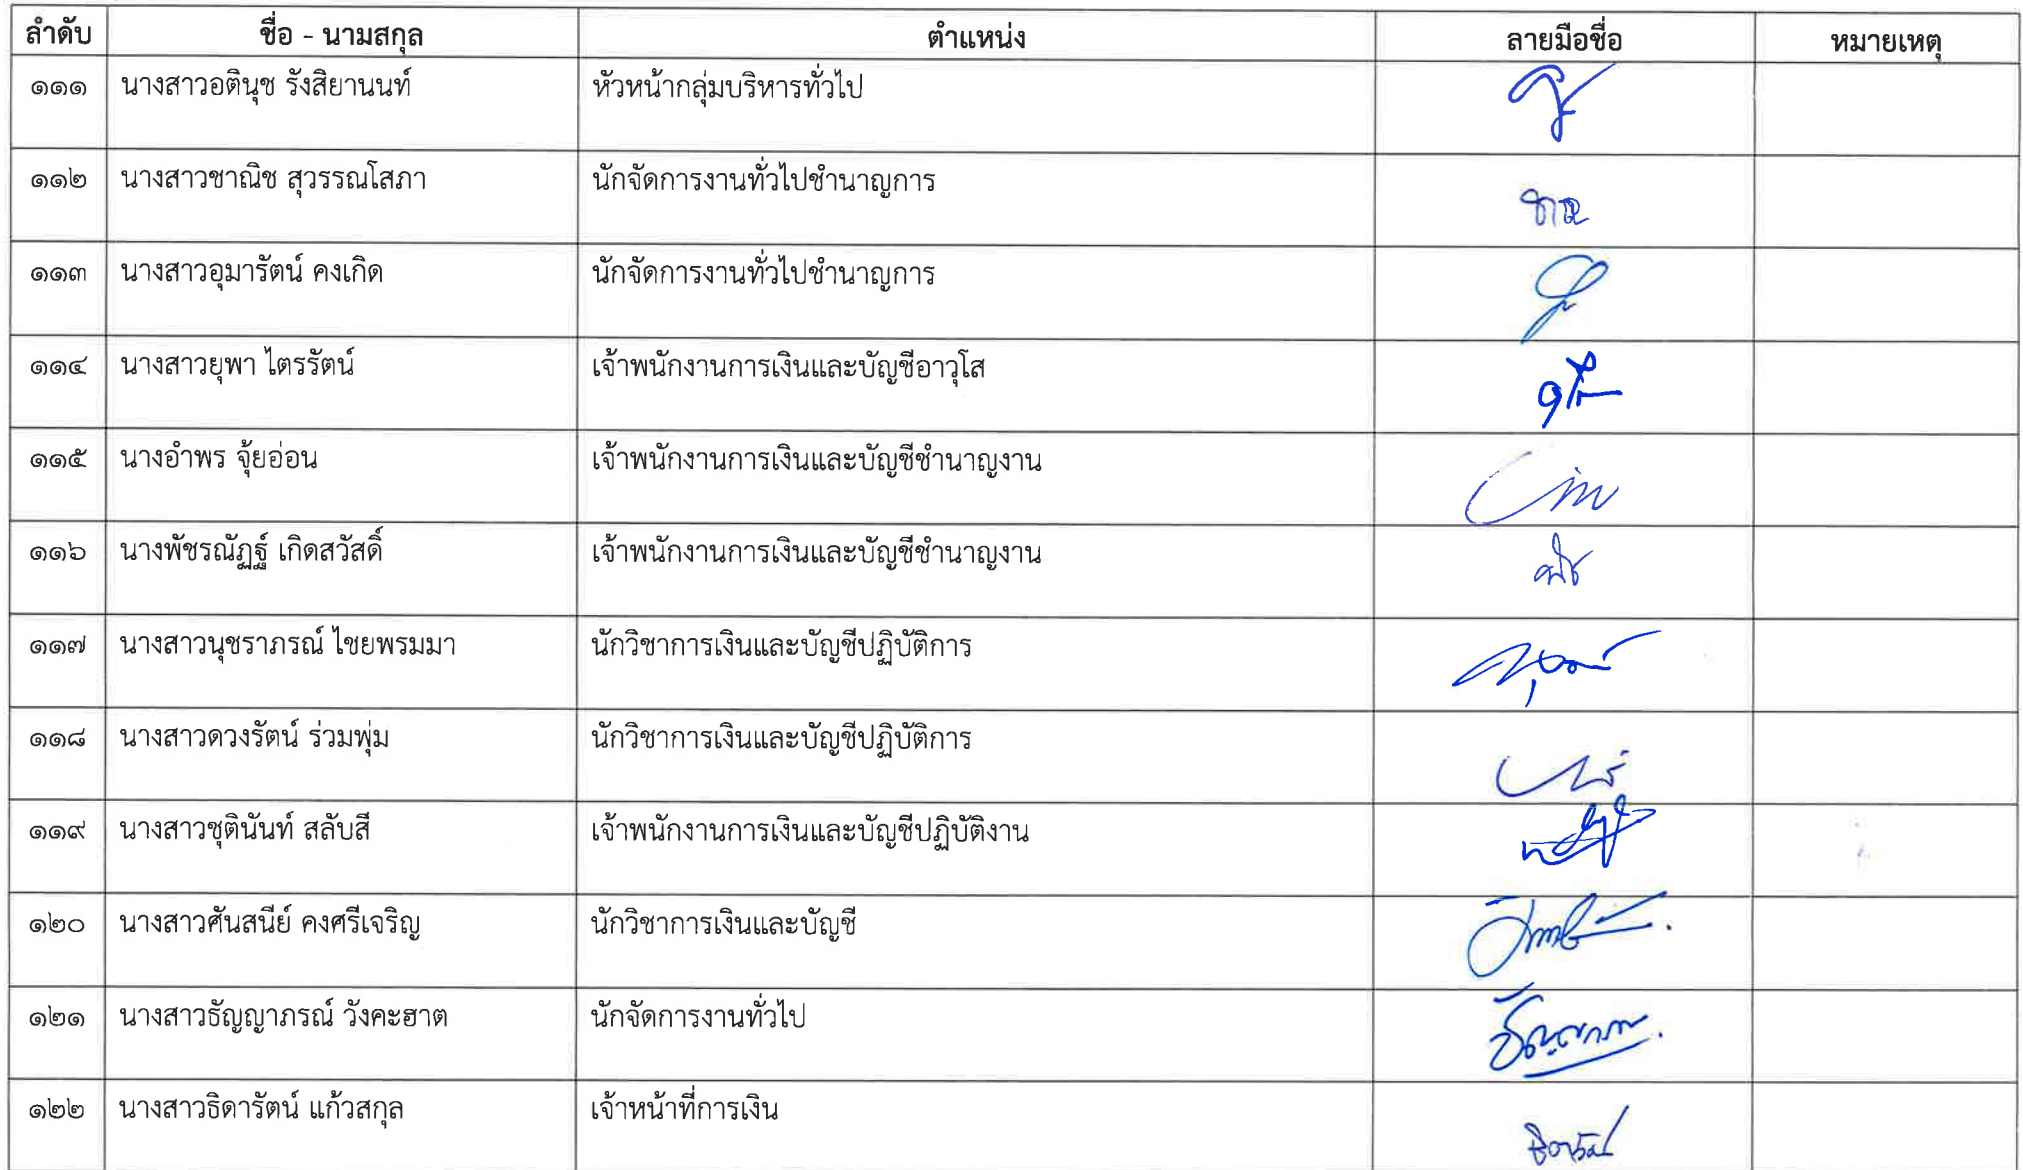 ลำดับ ชื่อ - นามสกุล ตำแหน่ง ลายมือชื่อ หมายเหตุ
๑๑๑ นางสาวอตินุช รังสิยานนท์ หัวหน้ากลุ่มบริหารทั่วไป
๑๑๒ นางสาวชาณิช สุวรรณโสภา นักจัดการงานทั่วไปชำนาญการ
๑๑๓ นางสาวอุมารัตน์ คงเกิด นักจัดการงานทั่วไปชำนาญการ
๑๑๔ นางสาวยุพา ไตรรัตน์ เจ้าพนักงานการเงินและบัญชีอาวุโส
๑๑๕ นางอำพร จุ้ยอ่อน เจ้าพนักงานการเงินและบัญชีชำนาญงาน
๑๑๖ นางพัชรณัฏฐ์ เกิดสวัสดิ์ เจ้าพนักงานการเงินและบัญชีชำนาญงาน
๑๑๗ นางสาวนุชราภรณ์ ไชยพรมมา นักวิชาการเงินและบัญชีปฏิบัติการ
๑๑๘ นางสาวดวงรัตน์ ร่วมพุ่ม นักวิชาการเงินและบัญชีปฏิบัติการ
๑๑๙ นางสาวชุตินันท์ สลับสี เจ้าพนักงานการเงินและบัญชีปฏิบัติงาน
๑๒๐ นางสาวศันสนีย์ คงศรีเจริญ นักวิชาการเงินและบัญชี
๑๒๑ นางสาวธัญญาภรณ์ วังคะฮาต นักจัดการงานทั่วไป
๑๒๒ นางสาวธิดารัตน์ แก้วสกุล เจ้าหน้าที่การเงิน